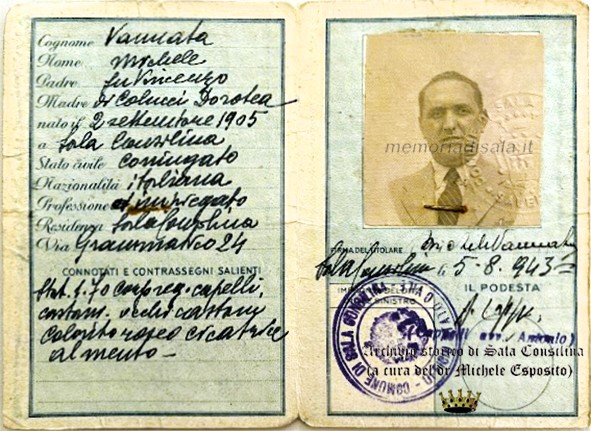 Cognome Vannata
Nome Michele
Padre fu Vincenzo
Madre di Colucci Dorotea
nato il 2 settembre 1905
a Sala Consilina
Stato civile coniugato
Nazionalità italiana
Professione impiegato
Residenza Sala Consilina
Via Grammatico 24
CONNOTATI E CONTRASSEGNI SALIENTI
Stat. 1.70 corp. reg. capelli,
castani occhi castani
colorito roseo cicatrice
al mento -
SALA
memoriadisala.it
FIRMA DEL TITOLARE Michele Vannata
Sala Consilina li 5-8-943
IL PODESTÀ
SINISTRO
COMUNE DI SALA CONSILINA
(Cappelli avv. Antonio)
Archivio storico di Sala Consilina
(a cura del dr Michele Esposito)